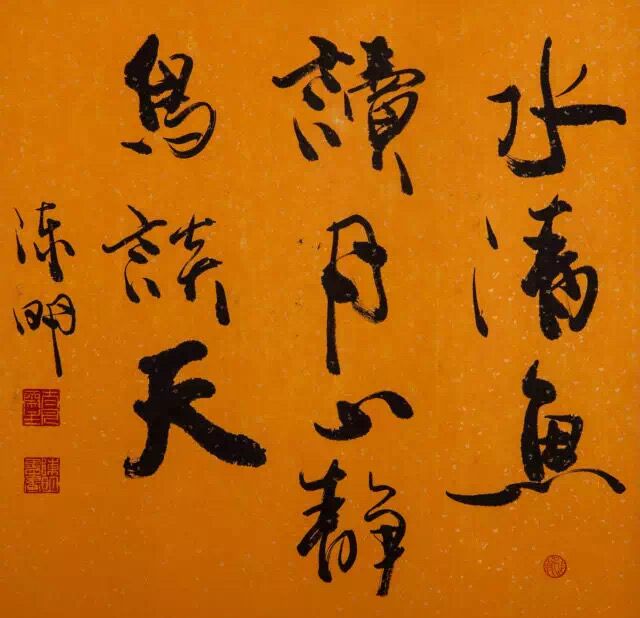 水清魚
讀月山静
鳥談天
陳明